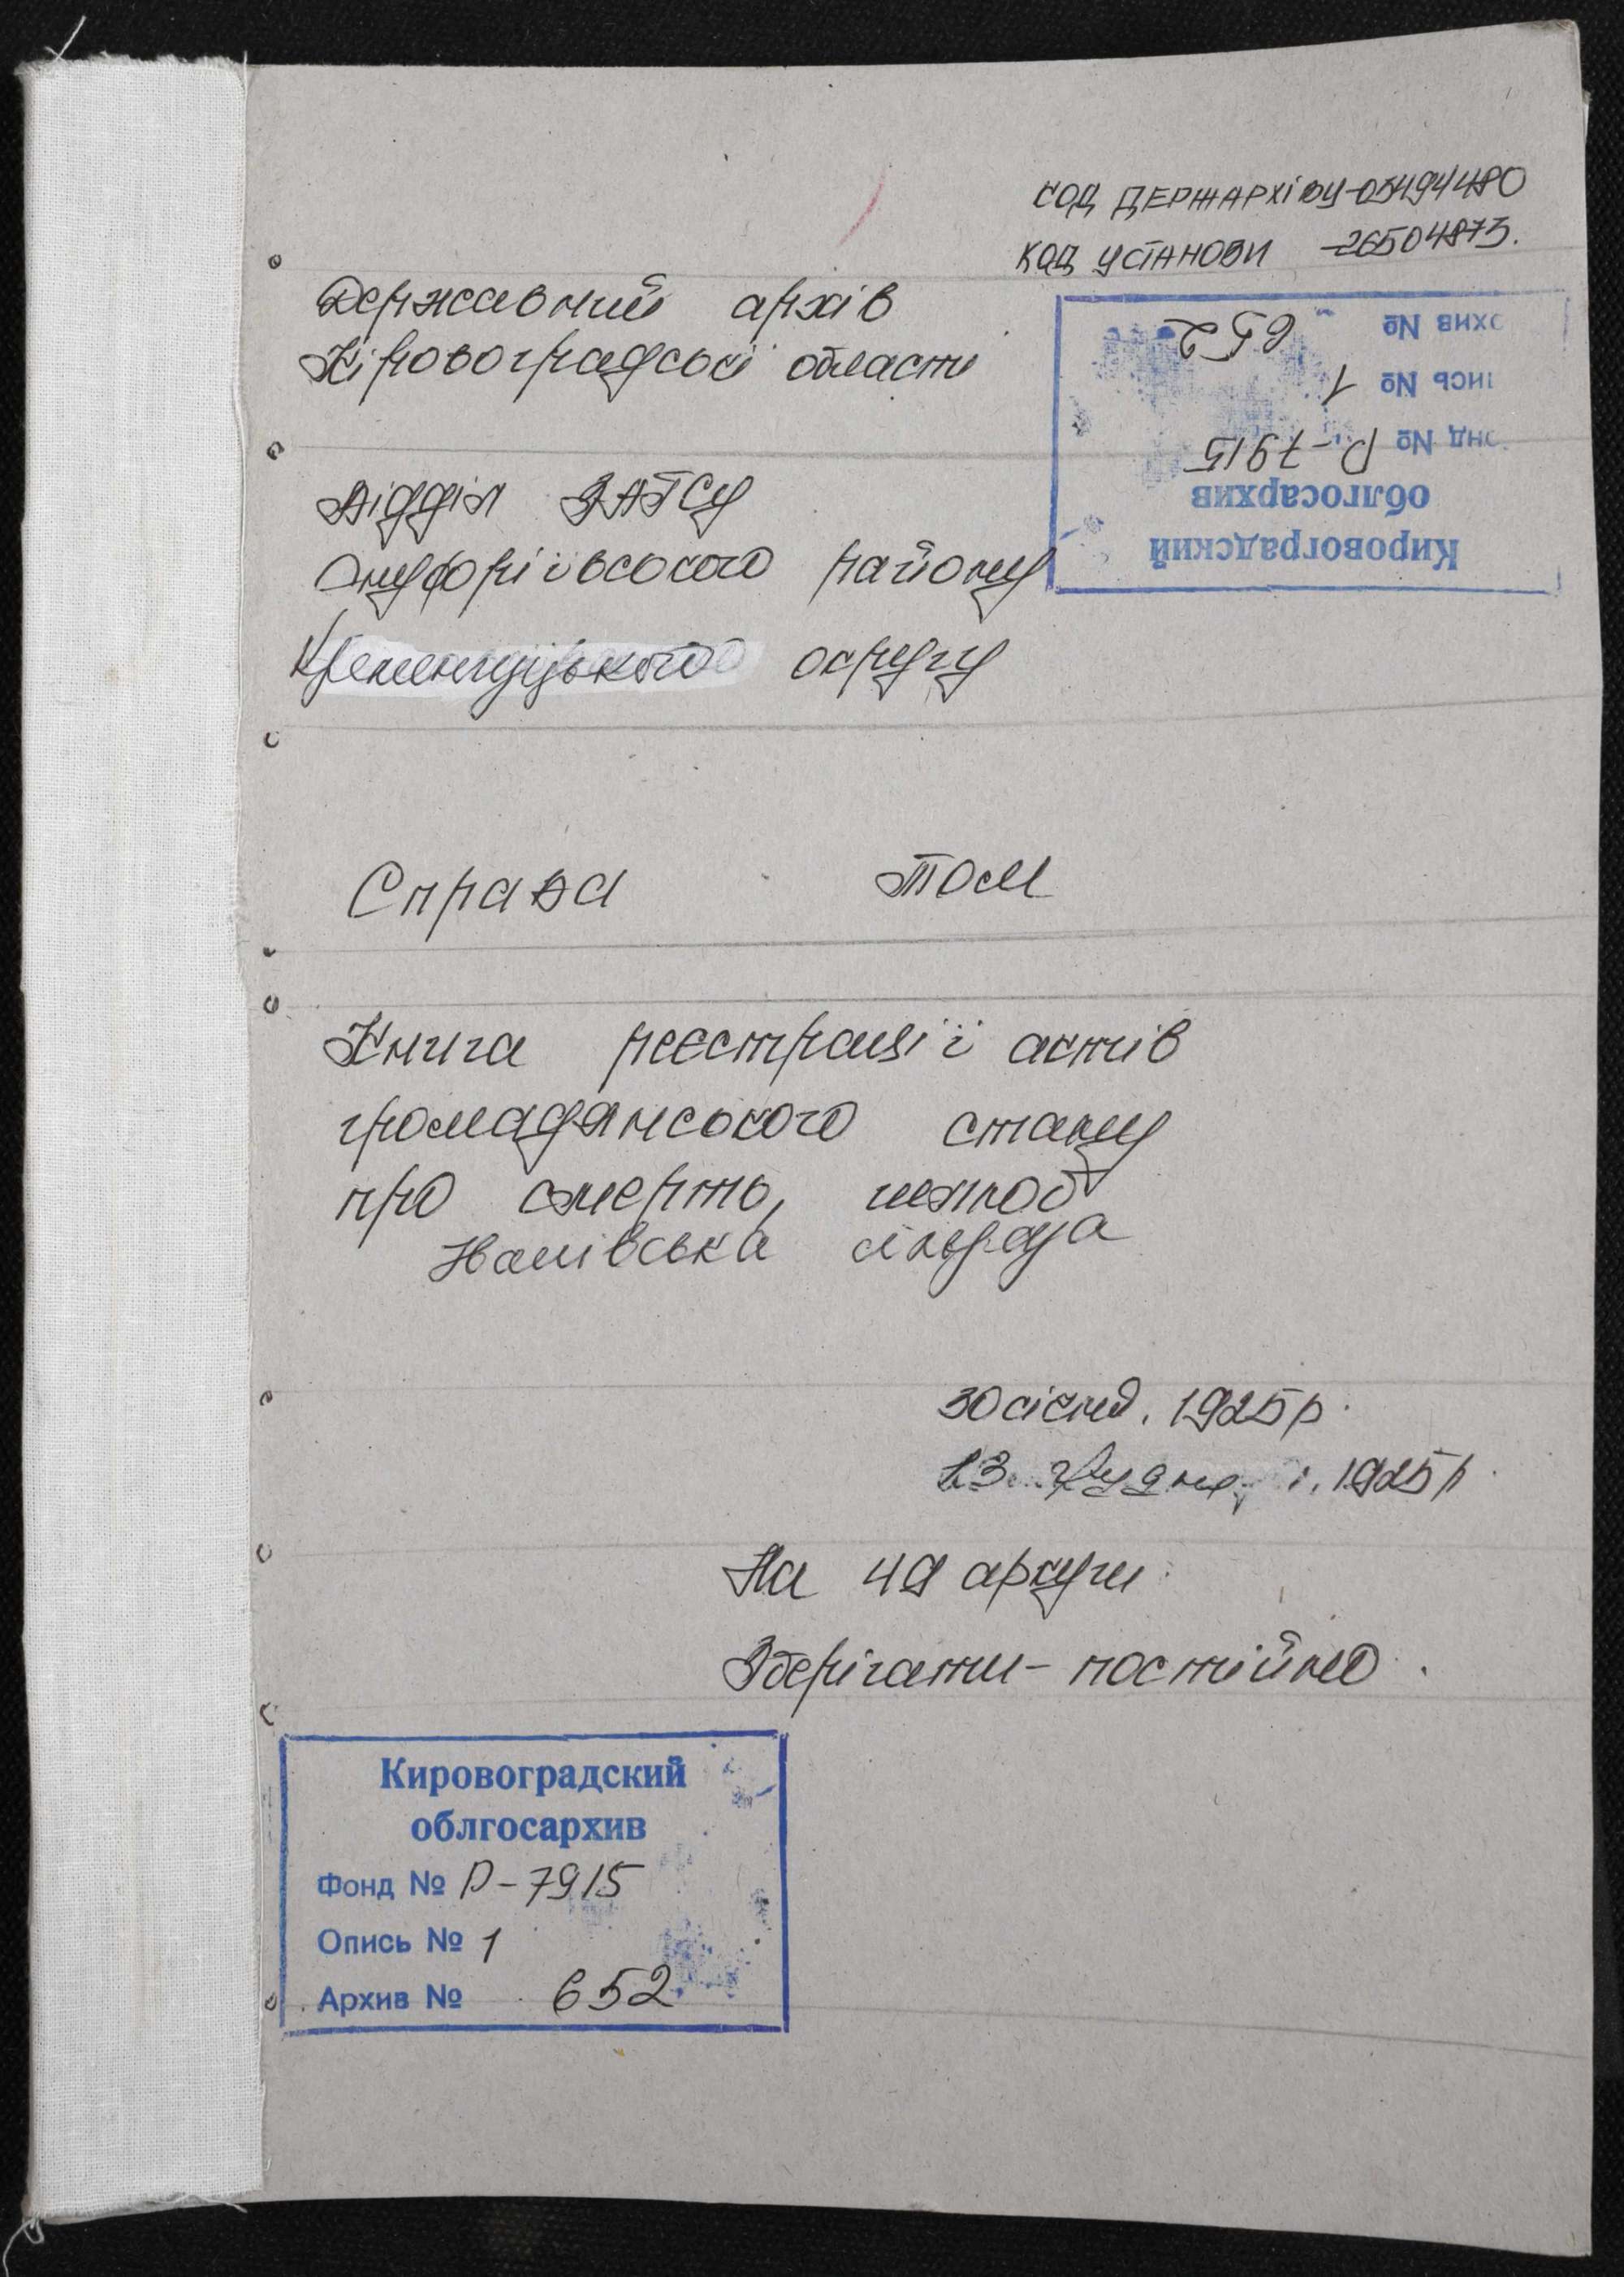 КОД ДЕРЖАРХІВУ-03494480
КОД УСТАНОВИ -26504873.
Державний архів
Кіровоградської області
Кировоградский
облгосархив
онд № Р-7915
ись № 1
рхив № 652
Відділ ЗАГСу
Онуфріївського району
Кременчуцького округу
Справа том
Книга реєстрації актів
громадянського стану
про смерть, шлюб
Іванівська сільрада
30 січня. 1925 р.
13 грудня. 1925 р
На 49 аркуш
Зберігати - постійно.
Кировоградский
облгосархив
Фонд № Р-7915
Опись № 1
Архив № 652